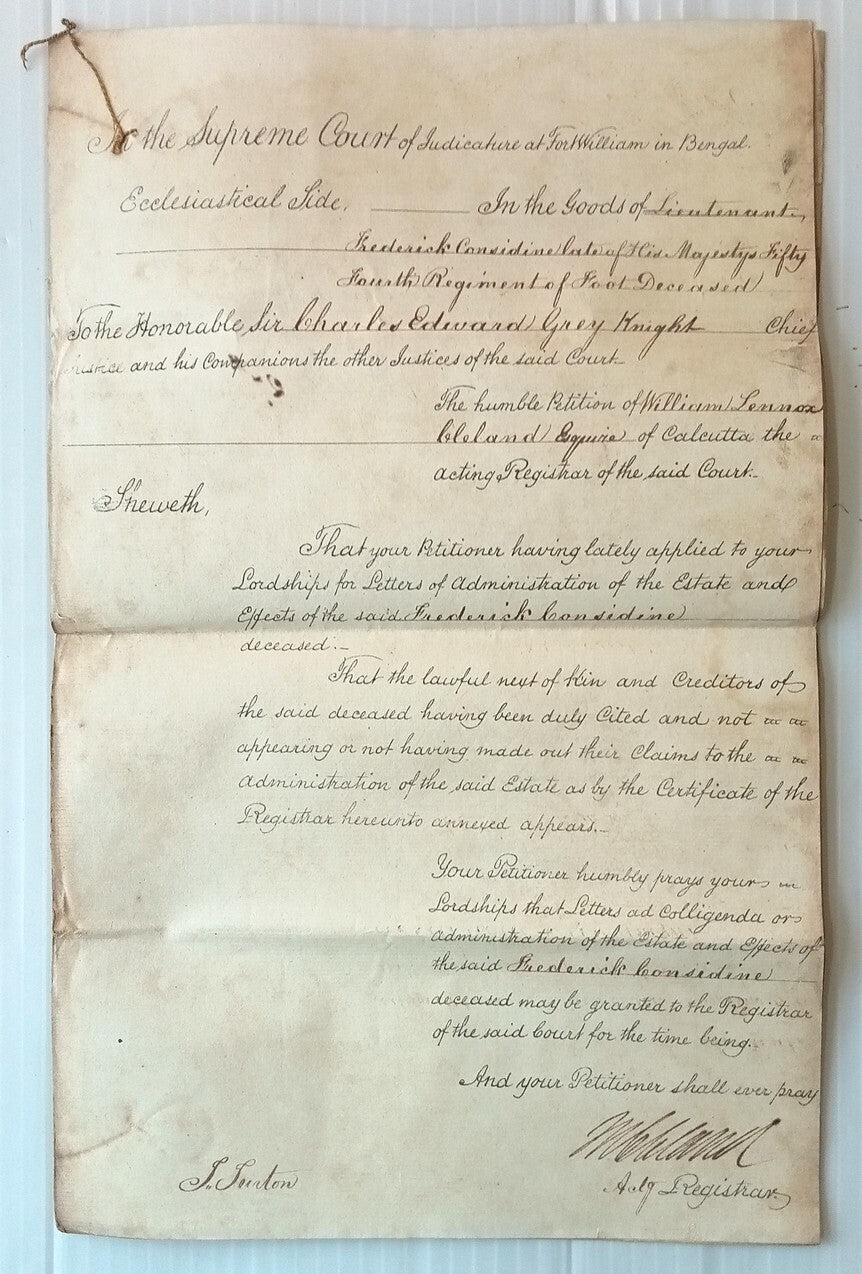 In the Supreme Court of Judicature at Fort William in Bengal.
Ecclesiastical Side, In the Goods of Lieutenant
Frederick Considine late of His Majestys Fifty
Fourth Regiment of Foot Deceased
To the Honorable Sir Charles Edward Grey Knight Chief
Justice and his Companions the other Justices of the said Court
The humble Petition of William Lennox
Cleland Esquire of Calcutta the
acting Registrar of the said Court.
Sheweth,
That your Petitioner having lately applied to your
Lordships for Letters of administration of the Estate and
Effects of the said Frederick Considine
deceased.
That the lawful next of Kin and Creditors of
the said deceased having been duly Cited and not
appearing or not having made out their Claims to the
administration of the said Estate as by the Certificate of the
Registrar hereunto annexed appears.
Your Petitioner humbly prays your
Lordships that Letters ad Colligenda or
administration of the Estate and Effects of
the said Frederick Considine
deceased may be granted to the Registrar
of the said Court for the time being.
And your Petitioner shall ever pray
WLCleland
Actg Registrar
T. Turton